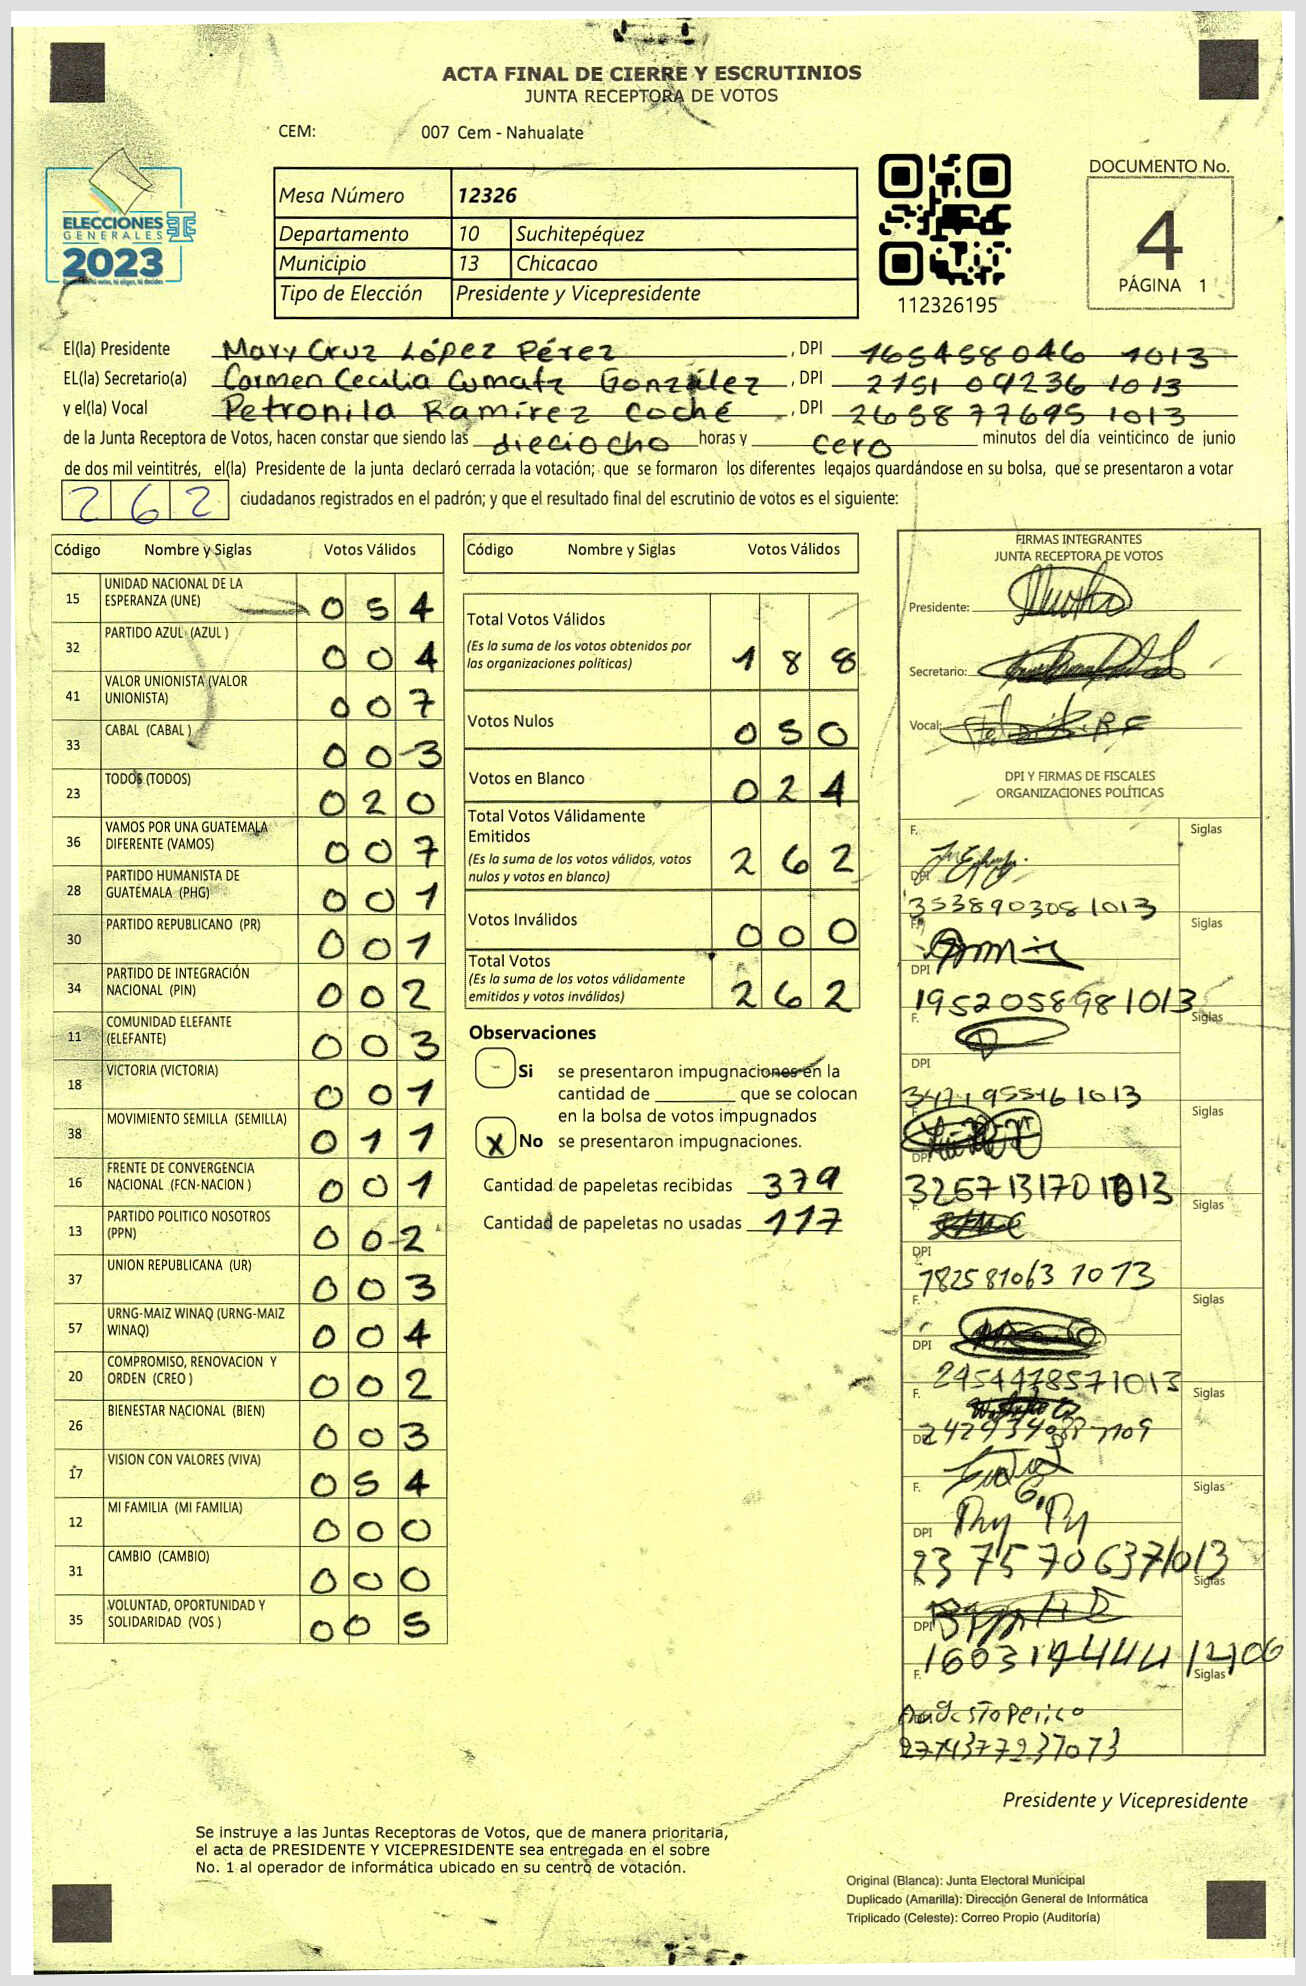 ACTA FINAL DE CIERRE Y ESCRUTINIOS
JUNTA RECEPTORA DE VOTOS
CEM: 007 Cem - Nahualate
ELECCIONES
GENERALES
2023
Mesa Número 12326
Departamento 10 Suchitepéquez
Municipio 13 Chicacao
Tipo de Elección Presidente y Vicepresidente
112326195
DOCUMENTO No.
4
PÁGINA 1
El(la) Presidente Mary Cruz López Pérez , DPI 165458046 1013
EL(la) Secretario(a) Carmen Cecilia Cumatz González , DPI 2751 09236 1013
y el(la) Vocal Petronila Ramírez Coché , DPI 265877695 1013
de la Junta Receptora de Votos, hacen constar que siendo las dieciocho horas y cero minutos del día veinticinco de junio
de dos mil veintitrés, el(la) Presidente de la junta declaró cerrada la votación; que se formaron los diferentes legajos guardándose en su bolsa, que se presentaron a votar
262 ciudadanos registrados en el padrón; y que el resultado final del escrutinio de votos es el siguiente:
Código Nombre y Siglas Votos Válidos
15 UNIDAD NACIONAL DE LA ESPERANZA (UNE) 054
32 PARTIDO AZUL (AZUL ) 004
41 VALOR UNIONISTA (VALOR UNIONISTA) 007
33 CABAL (CABAL ) 003
23 TODOS (TODOS) 020
36 VAMOS POR UNA GUATEMALA DIFERENTE (VAMOS) 007
28 PARTIDO HUMANISTA DE GUATEMALA (PHG) 001
30 PARTIDO REPUBLICANO (PR) 001
34 PARTIDO DE INTEGRACIÓN NACIONAL (PIN) 002
11 COMUNIDAD ELEFANTE (ELEFANTE) 003
18 VICTORIA (VICTORIA) 001
38 MOVIMIENTO SEMILLA (SEMILLA) 011
16 FRENTE DE CONVERGENCIA NACIONAL (FCN-NACION ) 001
13 PARTIDO POLITICO NOSOTROS (PPN) 002
37 UNION REPUBLICANA (UR) 003
57 URNG-MAIZ WINAQ (URNG-MAIZ WINAQ) 004
20 COMPROMISO, RENOVACION Y ORDEN (CREO ) 002
26 BIENESTAR NACIONAL (BIEN) 003
17 VISION CON VALORES (VIVA) 054
12 MI FAMILIA (MI FAMILIA) 000
31 CAMBIO (CAMBIO) 000
35 VOLUNTAD, OPORTUNIDAD Y SOLIDARIDAD (VOS ) 005
Código Nombre y Siglas Votos Válidos
Total Votos Válidos 188
(Es la suma de los votos obtenidos por
las organizaciones políticas)
Votos Nulos 050
Votos en Blanco 024
Total Votos Válidamente
Emitidos 262
(Es la suma de los votos válidos, votos
nulos y votos en blanco)
Votos Inválidos 000
Total Votos 262
(Es la suma de los votos válidamente
emitidos y votos inválidos)
Observaciones
Si se presentaron impugnaciones en la
cantidad de ________ que se colocan
en la bolsa de votos impugnados
X No se presentaron impugnaciones.
Cantidad de papeletas recibidas 379
Cantidad de papeletas no usadas 117
FIRMAS INTEGRANTES
JUNTA RECEPTORA DE VOTOS
Presidente:
Secretario:
Vocal:
DPI Y FIRMAS DE FISCALES
ORGANIZACIONES POLÍTICAS
F. Siglas
DPI
353890308 1013
F. Siglas
DPI
1952058981013
F. Siglas
DPI
Siglas
DPI
F. Siglas
DPI
182581063 1013
F. Siglas
DPI
2454478571013
F. Siglas
DPI
F. Siglas
DPI
23 75706371013
Siglas
DPI
F. Siglas
Presidente y Vicepresidente
Se instruye a las Juntas Receptoras de Votos, que de manera prioritaria,
el acta de PRESIDENTE Y VICEPRESIDENTE sea entregada en el sobre
No. 1 al operador de informática ubicado en su centro de votación.
Original (Blanca): Junta Electoral Municipal
Duplicado (Amarilla): Dirección General de Informática
Triplicado (Celeste): Correo Propio (Auditoría)